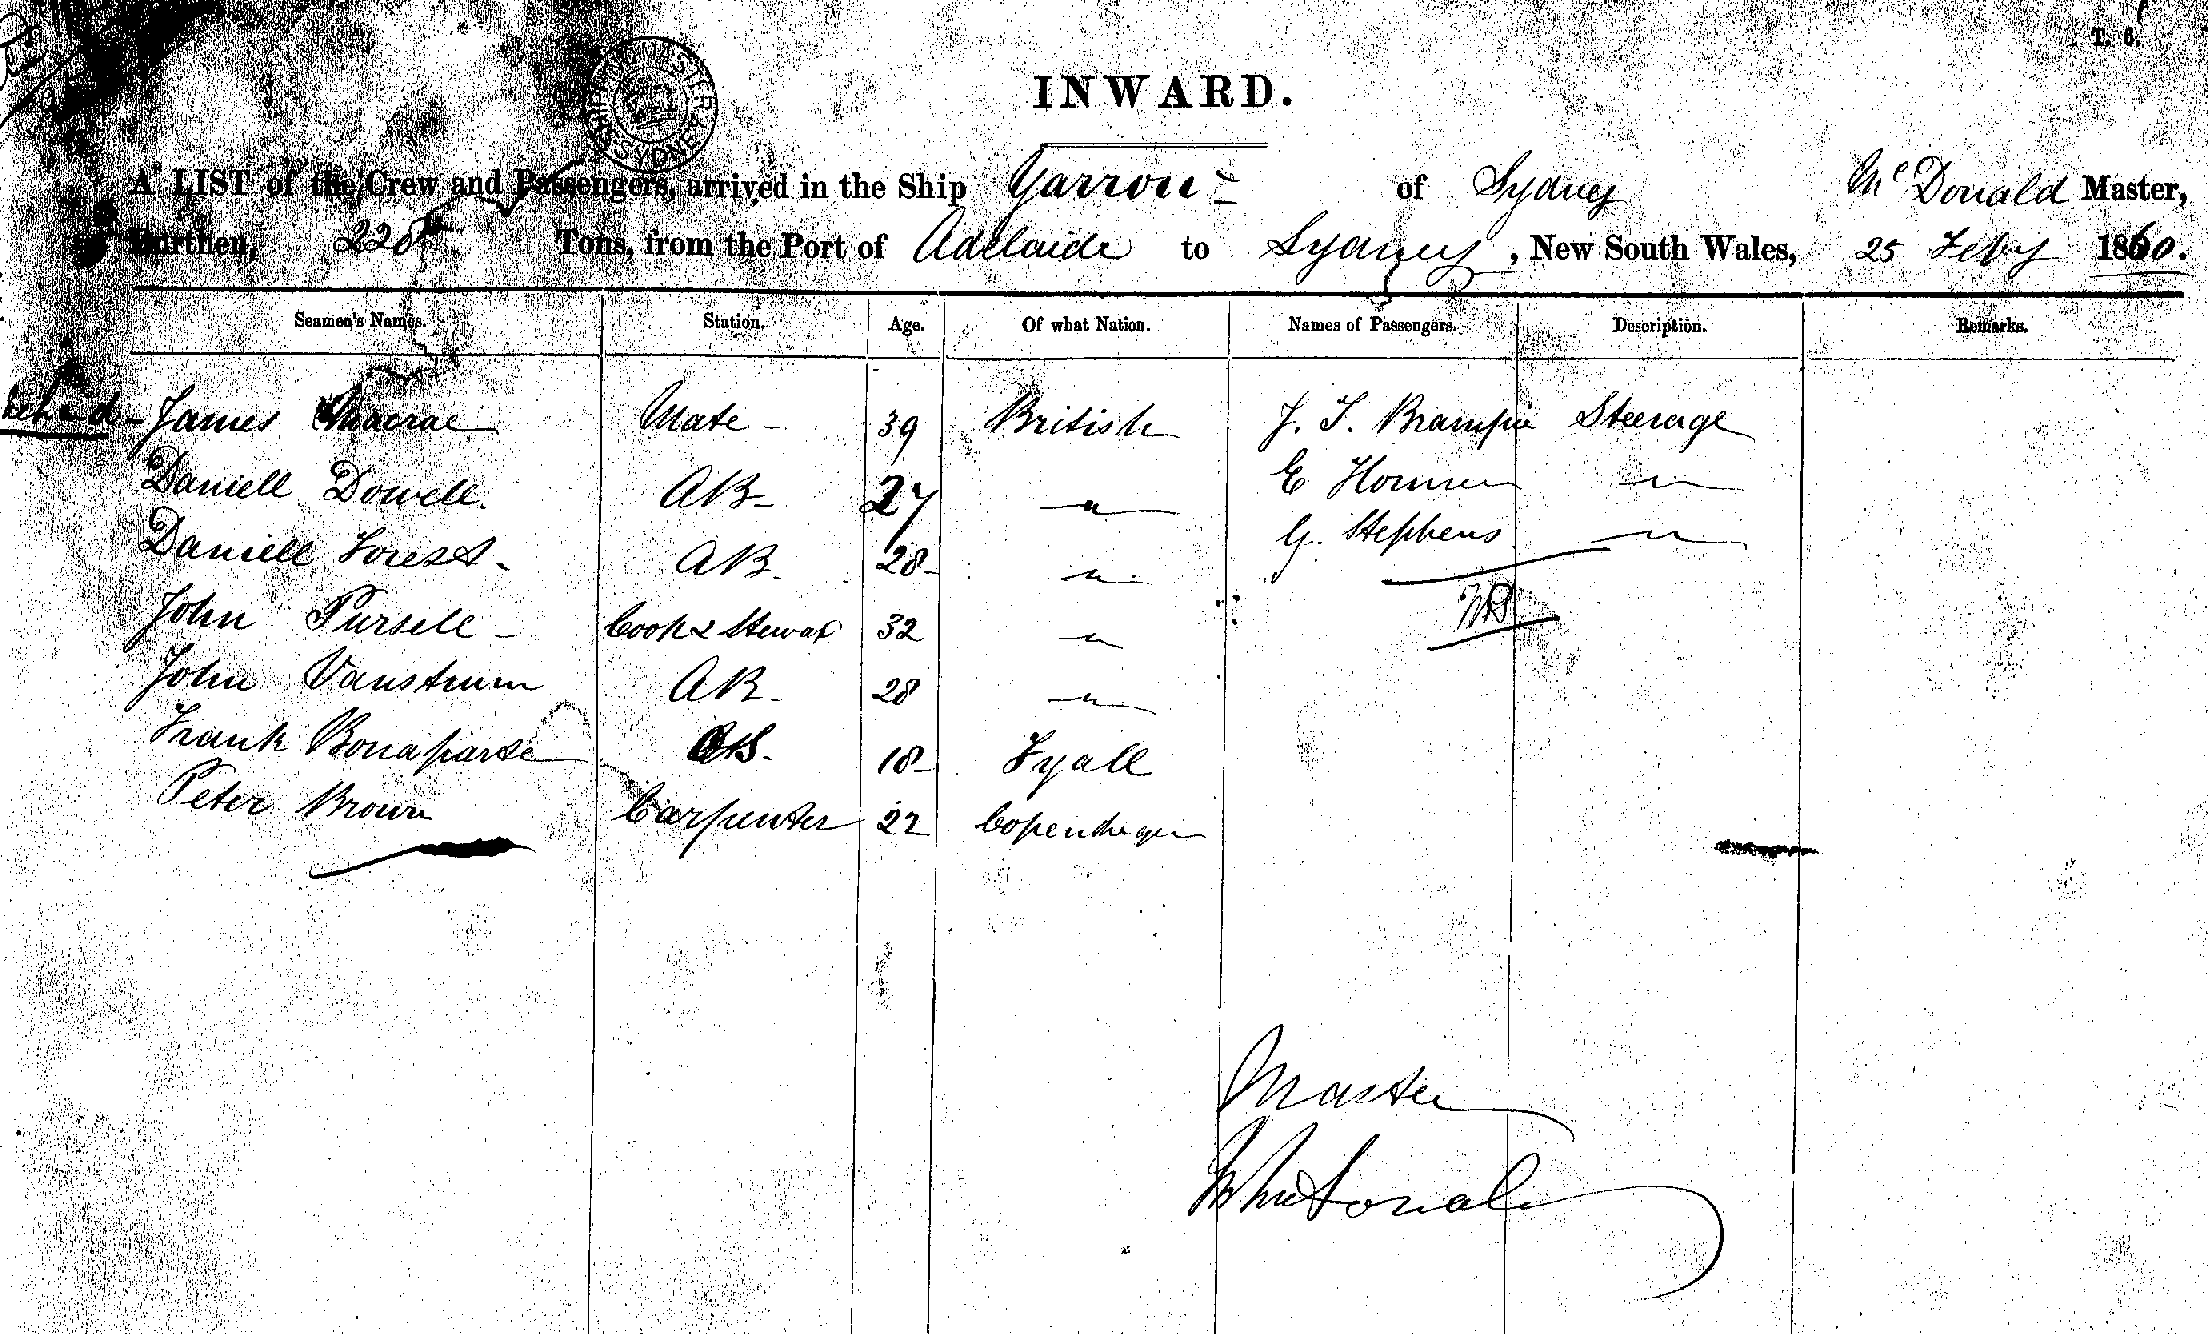 T. 6.
INWARD.
A LIST of the Crew and Passengers, arrived in the Ship Yarrow of Sydney Mc Donald Master,
Burthen, 228 Tons, from the Port of Adelaide to Sydney, New South Wales, 25 Feby 1860.
Seamen's Names. Station. Age. Of what Nation. Names of Passengers. Description. Remarks.
James Macrae Mate 39 British J. T. Steerage
Daniell Dowell. AB 27 " E "
Daniell Forest AB. 28 " G. Stephens "
John Pursell Cook & Steward 32 "
John Vanstrum AB 28 "
Frank Bonaparte OS. 18 Fyall
Peter Brown Carpenter 22 Copenhagen
Master